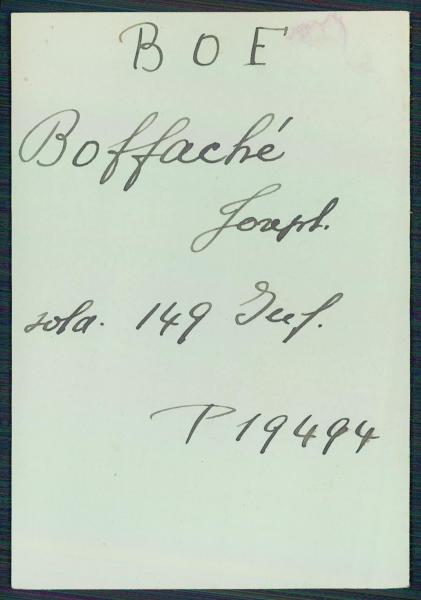 BOF
Boffaché
Joseph.
solda. 149 Inf.
P 19494